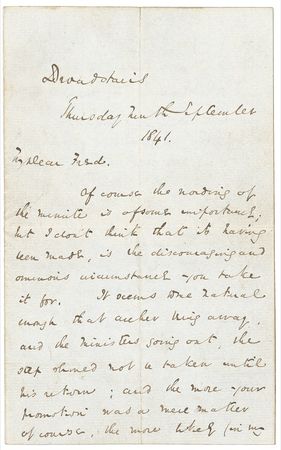 Broadstairs
Thursday Ninth September
1841.
My dear Fred.
Of course the wording of
the minute is of some importance;
but I don't think that its having
been made, is the discouraging and
ominous circumstance you take
it for. It seems to me natural
enough that archer being away,
and the ministers going out, the
step should not be taken until
his return; and the more your
promotion was a mere matter
of course, the more likely (in my